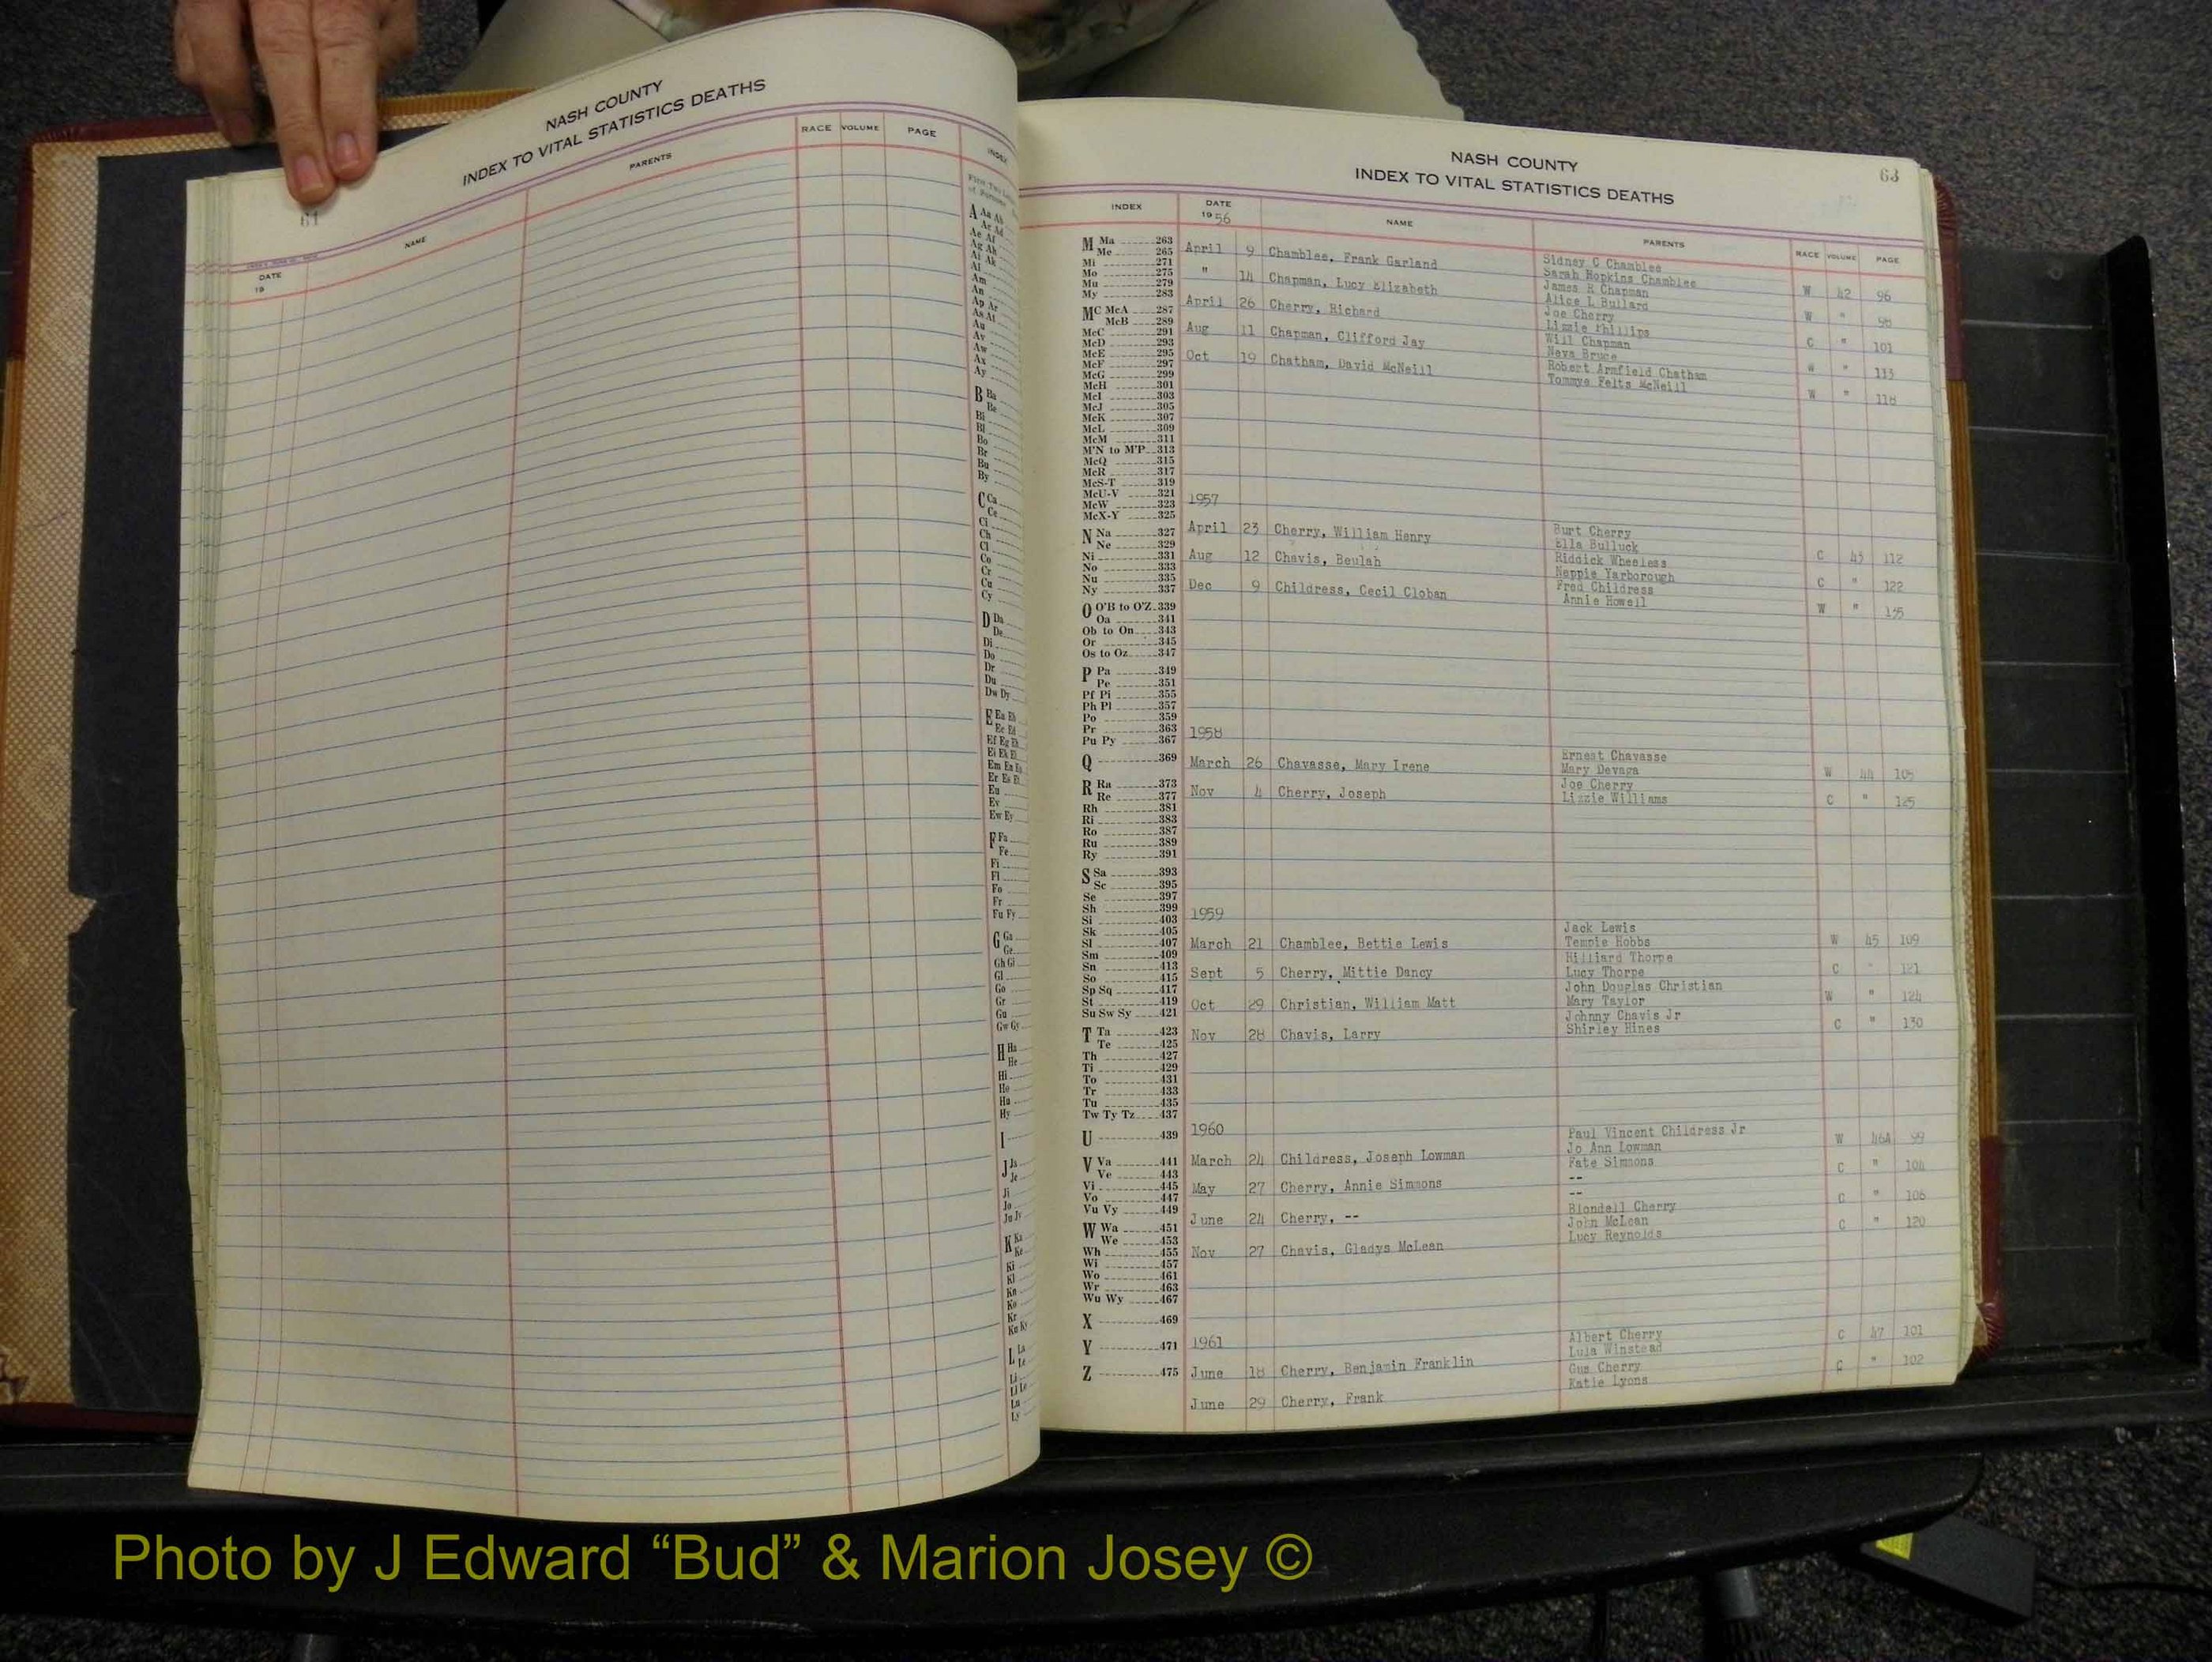 NASH COUNTY
INDEX TO VITAL STATISTICS DEATHS
61
DATE
19
NAME
PARENTS
RACE
VOLUME
PAGE
A Aa Ab
Ac Ad
Ae Af
Ag Ah
Ai Ak
Al
Am
An
Ap Ar
As At
Au
Av
Aw
Ax
Ay
B Ba
Be
Bi
Bl
Bo
Br
Bu
By
C Ca
Ce
Ci
Ch
Cl
Co
Cr
Cu
Cy
D Da
De
Di
Do
Dr
Du
Dw Dy
E Ea Eb
Ec Ed
Ef Eg Eh
Ei Ek El
Em En Eo
Er Es Et
Eu
Ev
Ew Ey
F Fa
Fe
Fi
Fl
Fo
Fr
Fu Fy
G Ga
Ge
Gh Gi
Gl
Go
Gr
Gu
Gw Gy
H Ha
He
Hi
Ho
Hu
Hy
I
J Ja
Je
Ji
Jo
Ju Jy
K Ka
Ke
Ki
Kl
Kn
Ko
Kr
Ku Ky
L La
Le
Li
Ll Lo
Lu
Ly
NASH COUNTY
INDEX TO VITAL STATISTICS DEATHS
63
INDEX
DATE
1956
NAME
PARENTS
RACE VOLUME PAGE
M Ma 263
Me 265
Mi 271
Mo 275
Mu 279
My 283
Mc McA 287
McB 289
McC 291
McD 293
McE 295
McF 297
McG 299
McH 301
McI 303
McJ 305
McK 307
McL 309
McM 311
M'N to M'P 313
McQ 315
McR 317
McS-T 319
McU-V 321
McW 323
McX-Y 325
N Na 327
Ne 329
Ni 331
No 333
Nu 335
Ny 337
O O'B to O'Z 339
Oa 341
Ob to On 343
Or 345
Os to Oz 347
P Pa 349
Pe 351
Pf Pi 355
Ph Pl 357
Po 359
Pr 363
Pu Py 367
Q 369
R Ra 373
Re 377
Rh 381
Ri 383
Ro 387
Ru 389
Ry 391
S Sa 393
Sc 395
Se 397
Sh 399
Si 403
Sk 405
Sl 407
Sm 409
Sn 413
So 415
Sp Sq 417
St 419
Su Sw Sy 421
T Ta 423
Te 425
Th 427
Ti 429
To 431
Tr 433
Tu 435
Tw Ty Tz 437
U 439
V Va 441
Ve 443
Vi 445
Vo 447
Vu Vy 449
W Wa 451
We 453
Wh 455
Wi 457
Wo 461
Wr 463
Wu Wy 467
X 469
Y 471
Z 475
April 9 Chamblee, Frank Garland Sidney C Chamblee
Sarah Hopkins Chamblee W 42 96
" 14 Chapman, Lucy Elizabeth James R Chapman
Alice L Bullard W " 98
April 26 Cherry, Richard Joe Cherry
Lizzie Phillips C " 101
Aug 11 Chapman, Clifford Jay Will Chapman
Neva Bruce W " 113
Oct 19 Chatham, David McNeill Robert Armfield Chatham
Tommye Felts McNeill W " 118
1957
April 23 Cherry, William Henry Burt Cherry
Ella Bulluck C 43 112
Aug 12 Chavis, Beulah Riddick Wheeless
Nappie Yarborough C " 122
Dec 9 Childress, Cecil Cloban Fred Childress
Annie Howell W " 135
1958
March 26 Chavasse, Mary Irene Ernest Chavasse
Mary Devaga W 44 105
Nov 4 Cherry, Joseph Joe Cherry
Lizzie Williams C " 125
1959
March 21 Chamblee, Bettie Lewis Jack Lewis
Tempie Hobbs W 45 109
Sept 5 Cherry, Mittie Dancy Hilliard Thorpe
Lucy Thorpe C " 121
Oct 29 Christian, William Matt John Douglas Christian
Mary Taylor W " 124
Nov 28 Chavis, Larry Johnny Chavis Jr
Shirley Hines C " 130
1960
March 24 Childress, Joseph Lowman Paul Vincent Childress Jr
Jo Ann Lowman W 46A 99
May 27 Cherry, Annie Simmons Fate Simmons
-- C " 104
June 24 Cherry, -- --
Blondell Cherry C " 106
Nov 27 Chavis, Gladys McLean John McLean
Lucy Reynolds C " 120
1961
June 18 Cherry, Benjamin Franklin Albert Cherry
Lula Winstead C 47 101
June 29 Cherry, Frank Gus Cherry
Katie Lyons C " 102
Photo by J Edward “Bud” & Marion Josey ©